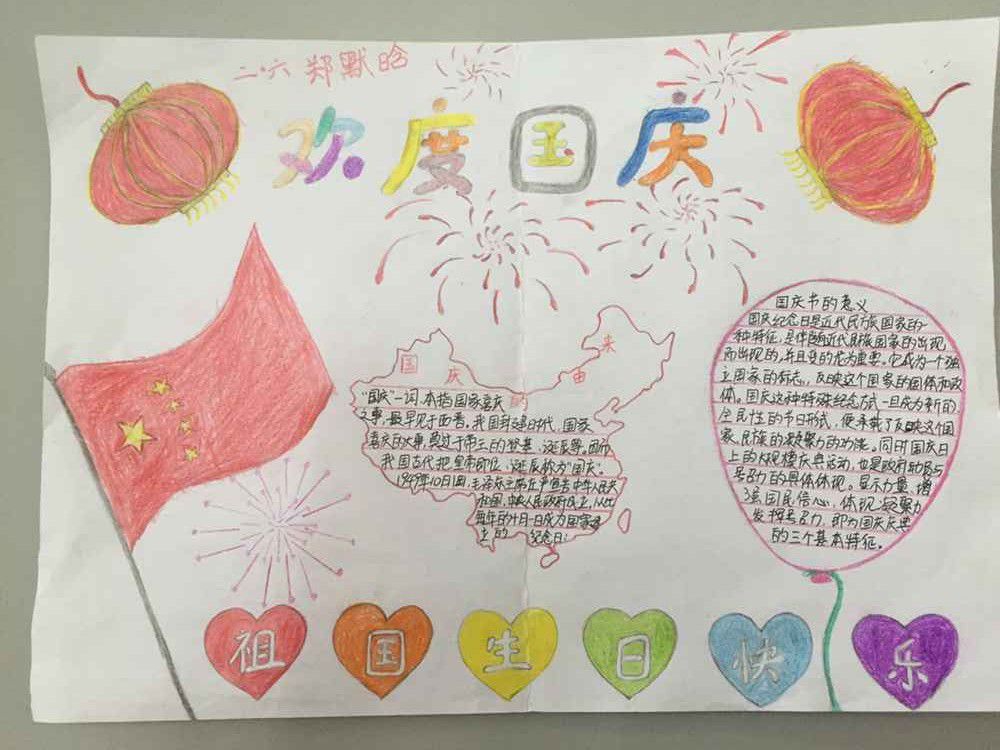 二.六 郑默晗
欢度国庆
国庆的由来
"国庆"一词,本指国家喜庆
之事,最早见于西晋。我国封建时代、国家
喜庆的大事,莫过于帝王的登基、诞辰等。因而
我国古代把皇帝即位、诞辰称为"国庆"。
1949年10日1日,毛泽东主席庄严宣告中华人民共
和国,中央人民政府成立,从此
每年的十月一日成为国家建
立的 纪念日;
国庆节的意义
国庆纪念日是近代民族国家的一
种特征,是伴随近代民族国家的出现
而出现的,并且变的尤为重要。它成为一个独
立国家的标志,反映这个国家的国体和政
体。国庆这种特殊纪念方式一旦成为新的、
全民性的节日形式,便承载了反映这个国
家、民族的凝聚力的功能。同时国庆日
上的大规模庆典活动,也是政府动员与
号召力的具体体现。显示力量、增
强国民信心,体现凝聚力
发挥号召力,即为国庆庆典
的三个基本特征。
祖国生日快乐